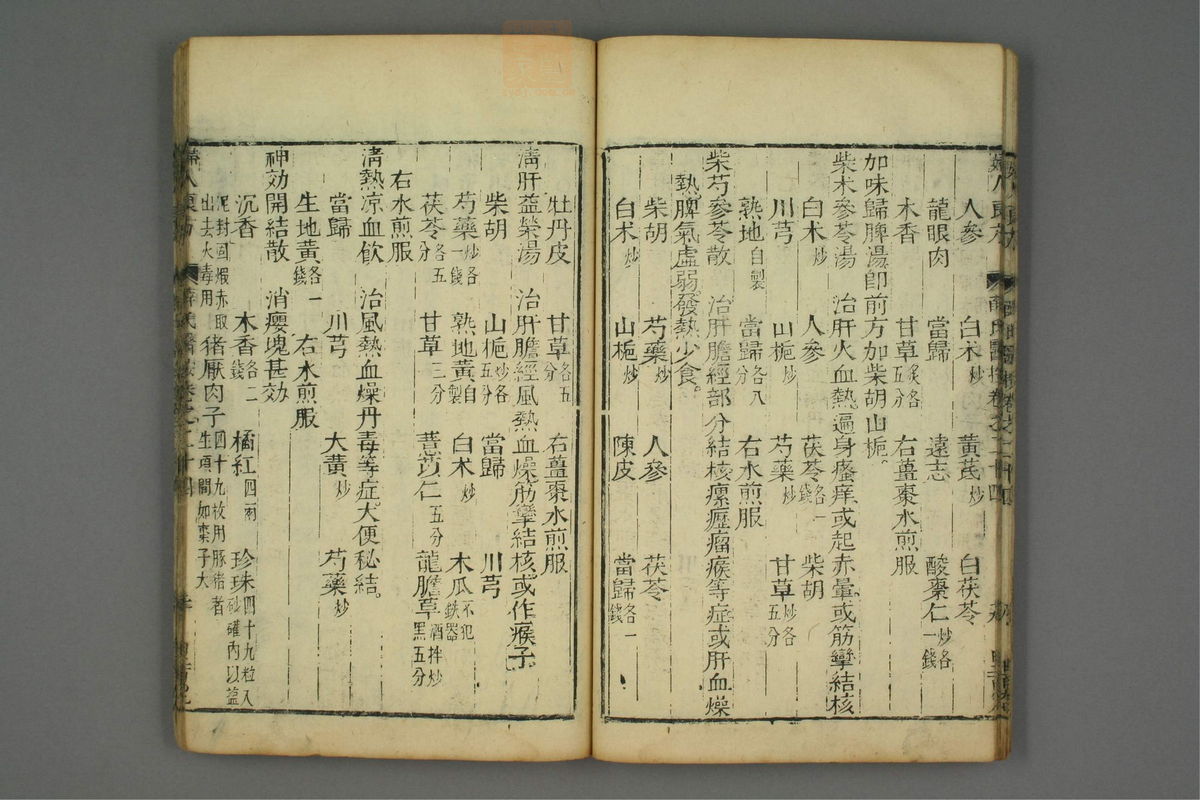 人參 白朮炒 黃芪炒 白茯苓
龍眼肉 當歸 遠志 酸棗仁炒各一錢
木香 甘草炙各五分 右薑棗水煎服
加味歸脾湯卽前方加柴胡山梔
柴朮參苓湯 治肝火血熱遍身瘙痒或起赤暈或筋攣結核
白朮炒 人參 茯苓各一錢 柴胡
川芎 山梔炒 芍藥炒 甘草炒各五分
熟地自製 當歸各八分 右水煎服
柴芍參苓散 治肝膽經部分結核瘰癧瘤瘊等症或肝血燥
熱脾氣虛弱發熱少食
柴胡 芍藥炒 人參 茯苓
白朮炒 山梔炒 陳皮 當歸各一錢
牡丹皮 甘草各五分 右薑棗水煎服
淸肝益榮湯 治肝膽經風熱血燥筋攣結核或作瘊子
柴胡 山梔炒各五分 當歸 川芎
芍藥炒各一錢 熟地黃自製 白朮炒 木瓜不犯鉄器
茯苓各五分 甘草三分 薏苡仁五分 龍膽草酒拌炒黑五分
右水煎服
淸熱凉血飮 治風熱血燥丹毒等症大便秘結
當歸 川芎 大黃炒 芍藥炒
生地黃各一錢 右水煎服
神効開結散 消癭塊甚効
沉香 木香各二錢 橘紅四兩 珍珠四十九粒入砂礶內以鹽
泥封固煆赤取出去火毒用 猪厭肉子四十九枚用豚猪者生項間如棗子大